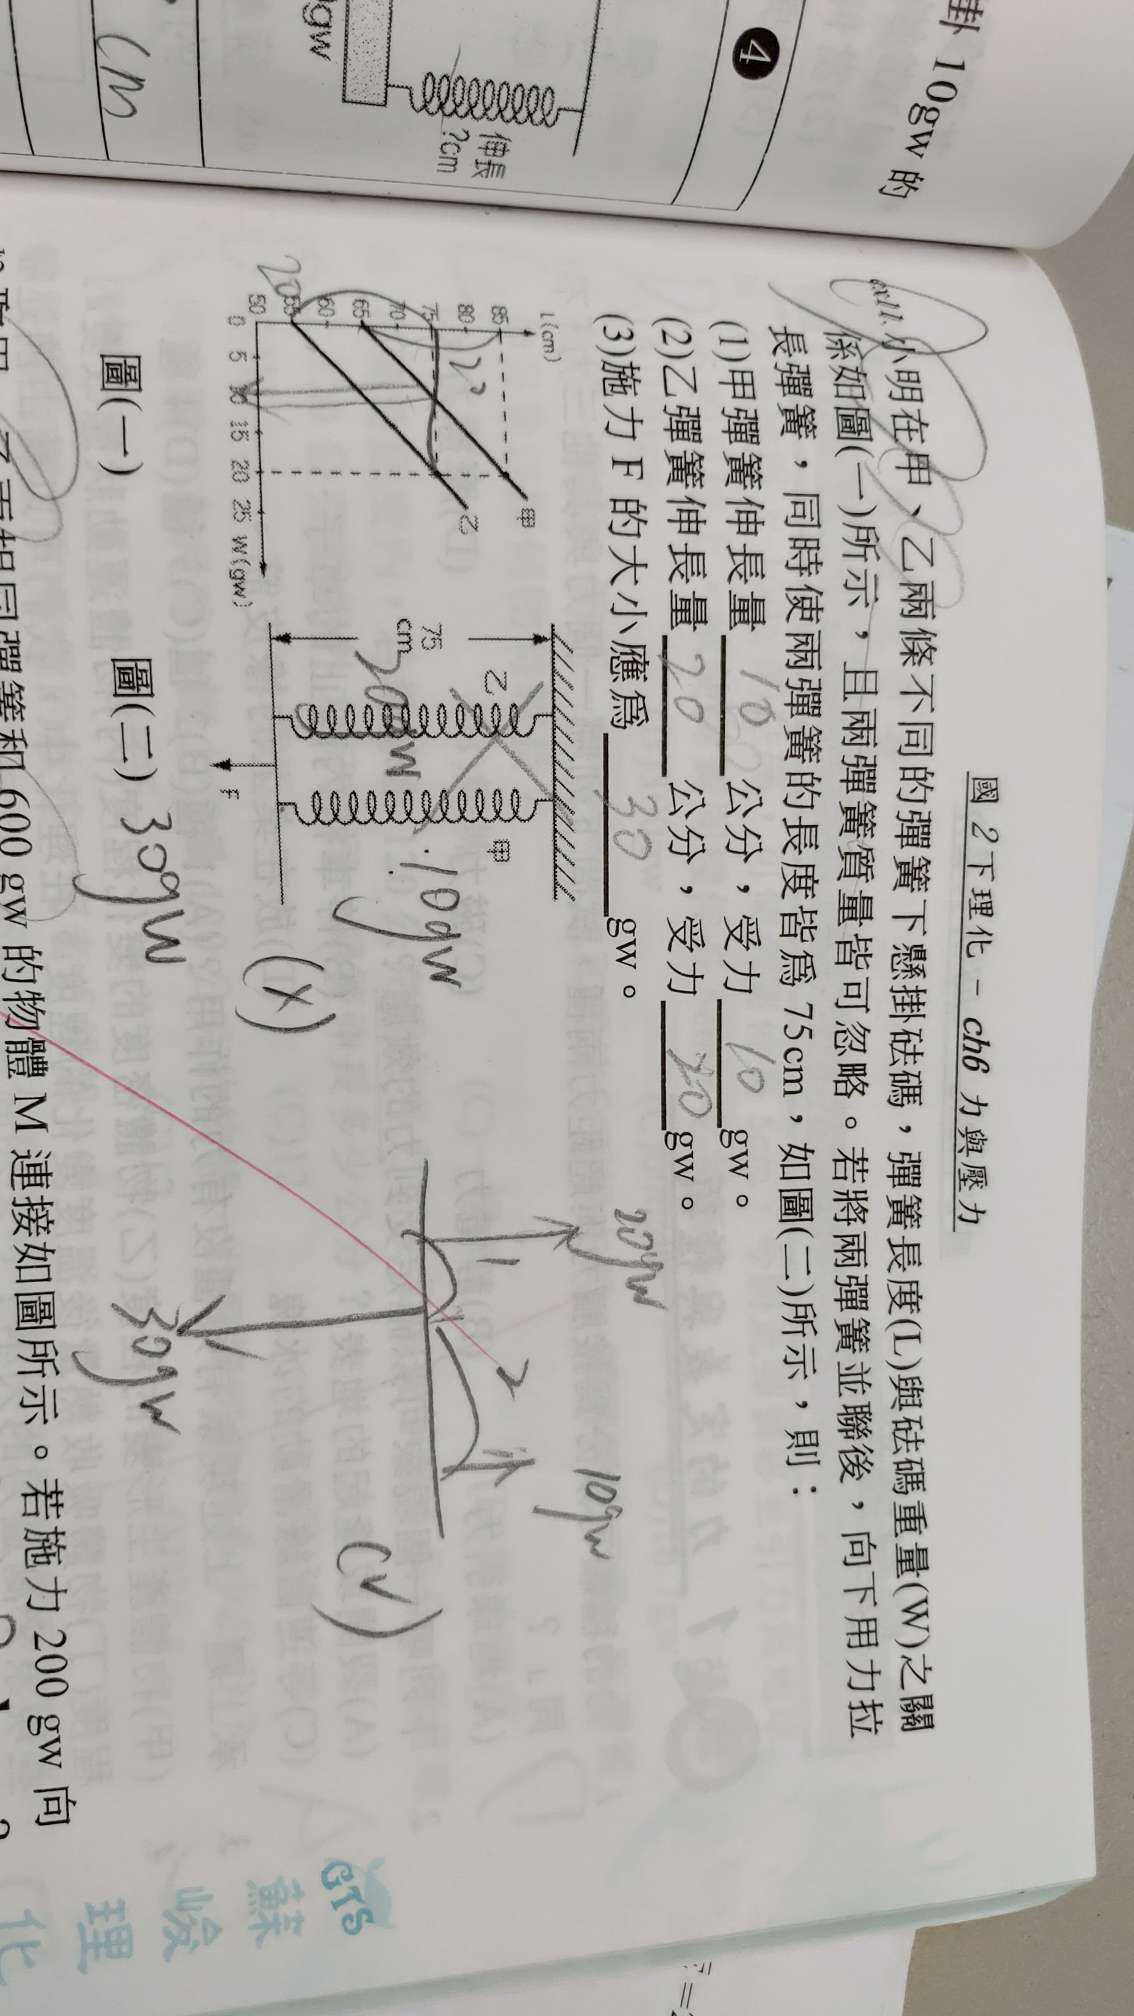 掛 10gw 的
4
gw
伸長
?cm
cm
國 2 下理化 - ch6 力與壓力
ex11. 小明在甲、乙兩條不同的彈簧下懸掛砝碼，彈簧長度(L)與砝碼重量(W)之關
係如圖(一)所示，且兩彈簧質量皆可忽略。若將兩彈簧並聯後，向下用力拉
長彈簧，同時使兩彈簧的長度皆為 75cm，如圖(二)所示，則：
(1)甲彈簧伸長量 10 公分，受力 10 gw。
(2)乙彈簧伸長量 20 公分，受力 20 gw。
(3)施力 F 的大小應為 30 gw。
L(cm)
85
80
75
70
65
60
55
50
0 5 10 15 20 25 W(gw)
甲
乙
20
圖(一)
75
cm
乙
甲
F
20gw
10gw
圖(二)
30gw
(X)
20gw
10gw
1
2
30gw
(V)
彈簧和 600 gw 的物體 M 連接如圖所示。若施力 200 gw 向
GTS
蘇峻理化